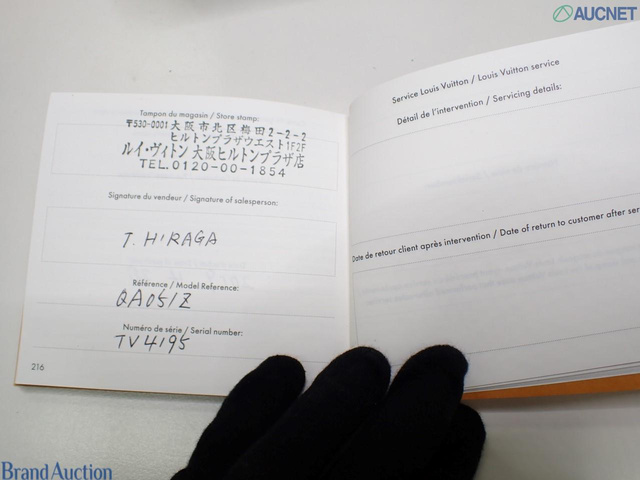 AUCNET
Tampon du magasin / Store stamp:
〒530-0001 大阪市北区梅田2-2-2
ヒルトンプラザウエスト1F2F
ルイ・ヴィトン 大阪ヒルトンプラザ店
TEL.0120-00-1854
Signature du vendeur / Signature of salesperson:
T. HIRAGA
Référence / Model Reference:
QA051Z
Numéro de série / Serial number:
TV4195
216
Service Louis Vuitton / Louis Vuitton service
Détail de l'intervention / Servicing details:
Date de retour client après intervention / Date of return to customer after ser
Brand Auction